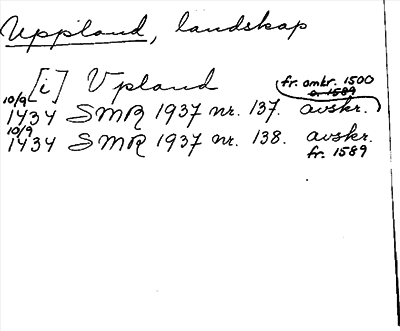 Uppland, landskap
[i] Vpland
fr. omkr. 1500
o. 1589
10/9
1434 SMR 1937 nr. 137. avskr.
10/9
1434 SMR 1937 nr. 138. avskr.
fr. 1589